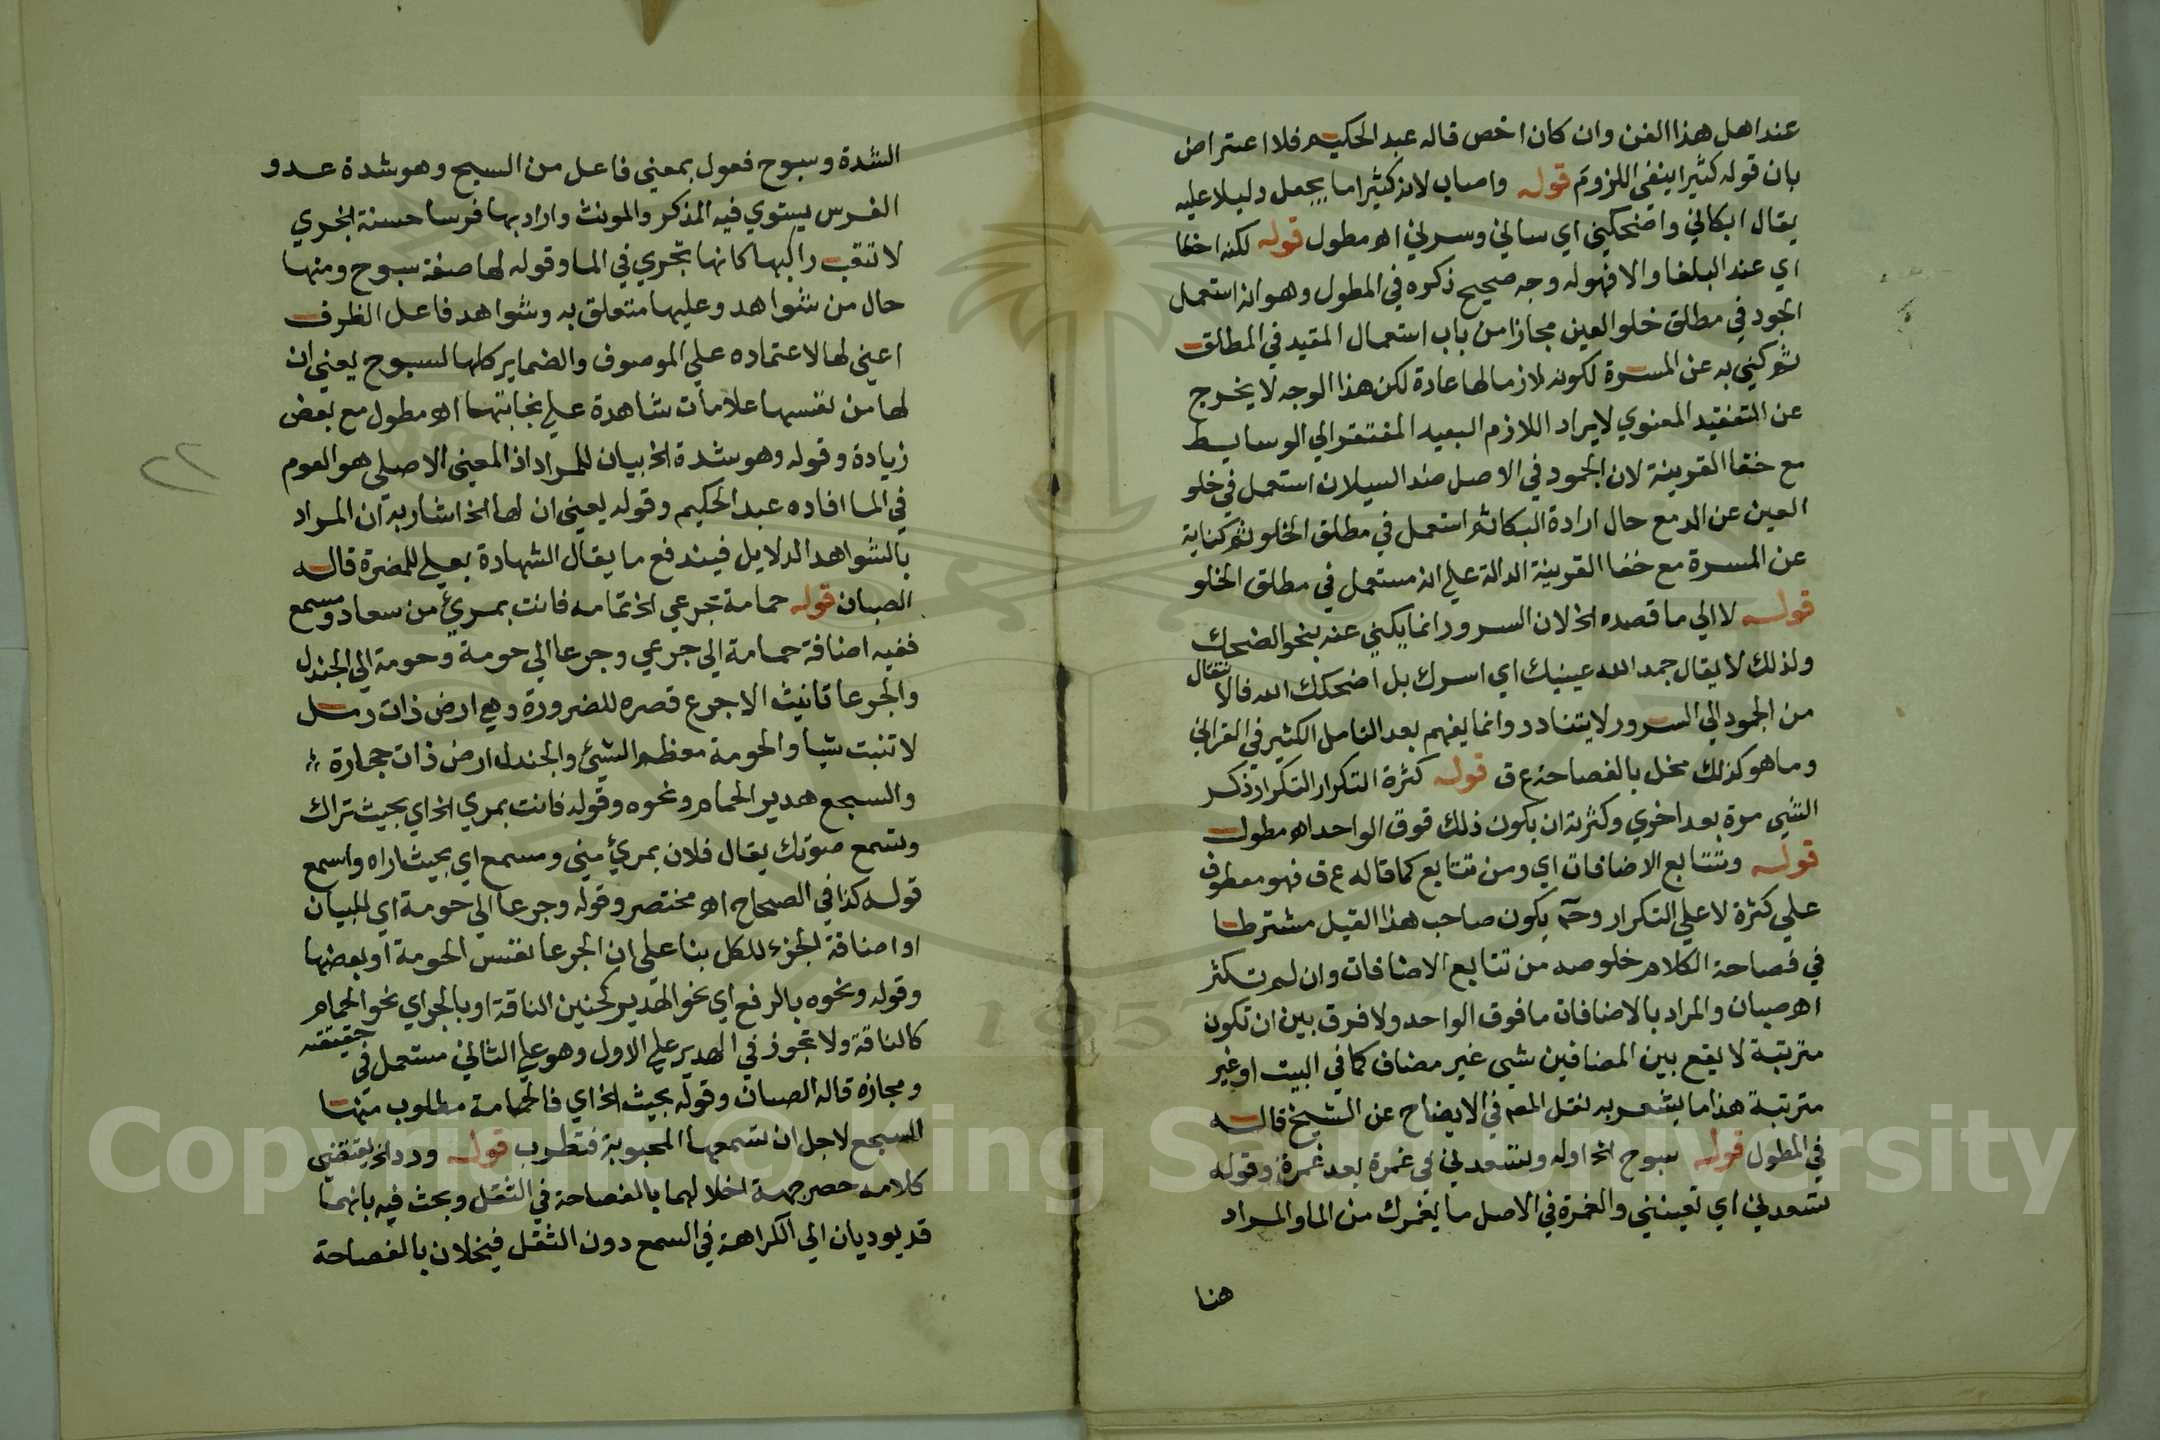 عند اهل هذا الفن وان كان اخص قاله عبد الحكيم فلا اعتراض
بان قوله كثيرا ينفي اللزوم قوله واصاب لان كثيرا ما يجعل دليلا عليه
يقال ابكاني واضحكني اي ساني وسرني اه مطول قوله لكنه اخطا
اي عند البلغا والا فهوله وجه صحيح ذكره في المطول وهو انه استعمل
الجمود في مطلق خلو العين مجازا من باب استعمال المقيد في المطلق
ثم كني به عن المسرة لكونه لازما لها عادة لكن هذا الوجه لا يخرج
عن التعقيد المعنوي لايراد اللازم البعيد المفتقر الي الوسايط
مع خفا القرينة لان الجمود في الاصل ضد السيلان استعمل في خلو
العين عن الدمع حال ارادة البكا ثم استعمل في مطلق الخلو ثم كناية
عن المسرة مع خفا القرينة الدالة علي انه مستعمل في مطلق الخلو
قوله لا الي ما قصده الخ لان السرور انما يكني عنه بنحو الضحك
ولذلك لا يقال جمد الله عينيك اي اسرك بل اضحكك الله فالانتقال
من الجمود الي السرور لا يتنادر وانما يفهم بعد التامل الكثير في القراني
وما هو كذلك مخل بالفصاحة ع ق قوله كثرة التكرار التكرار ذكر
الشي مرة بعد اخري وكثرته ان يكون ذلك فوق الواحد اه مطول
قوله وتتابع الاضافات اي ومن تتابع كما قاله ع ق فهو معطوف
علي كثرة لا علي التكرار وح يكون صاحب هذا القيل مشترطا
في فصاحة الكلام خلوصه من تتابع الاضافات وان لم تكثر
اه صبان والمراد بالاضافات ما فوق الواحد ولا فرق بين ان تكون
مترتبة لا يقع بين المضافين شي غير مضاف كما في البيت او غير
مترتبة هذا ما يشعر به نقل المص في الايضاح عن الشيخ قاله
في المطول قوله سبوح الخ اوله وتسعدني في غمرة بعد غمرة وقوله
تسعدني اي تعينني والغمرة في الاصل ما يغمرك من الما والمراد
هنا
الشدة وسبوح فعول بمعني فاعل من السبح وهو شدة عدو
الفرس يستوي فيه المذكر والمونث واراد بها فرسا حسنة الجري
لا تتعب راكبها كانها تجري في الما وقوله لها صفة سبوح ومنها
حال من شواهد وعليها متعلق به وشواهد فاعل الظرف
اعني لها لاعتماده علي الموصوف والضماير كلها لسبوح يعني ان
لها من نفسها علامات شاهدة علي نجابتها اه مطول مع بعض
زيادة وقوله وهو شدة الخ بيان للمراد اذ المعني الاصلي هو العوم
في الما افاده عبد الحكيم وقوله يعني ان لها الخ اشار به ان المراد
بالشواهد الدلايل فيندفع ما يقال الشهادة بعلي للمضرة قاله
الصبان قوله حمامة جرعي الخ تمامه فانت بمرئ من سعاد ومسمع
ففيه اضافة حمامة الي جرعي وجرعا الي حومة وحومة الي الجندل
والجرعا تانيث الاجرع قصره للضرورة وهي ارض ذات رمل
لا تنبت شيا والحومة معظم الشئ والجندل ارض ذات حجارة
والسجع هدير الحمام ونحوه وقوله فانت بمري الخ اي بحيث تراك
وتسمع صوتك يقال فلان بمرئ مني ومسمع اي بحيث اراه واسمع
قوله كذا في الصحاح اه مختصر وقوله وجرعا الي حومة اي للبيان
او اضافة الجزء للكل بنا علي ان الجرعا نفس الحومة او بعضها
وقوله ونحوه بالرفع اي نحو الهدير كحنين الناقة او بالجر اي نحو الحمام
كالناقة ولا تجوز في الهدير علي الاول وهو علي الثاني مستعمل في حقيقته
ومجازه قاله الصبان وقوله بحيث الخ اي فالحمامة مطلوب منها
السجع لاجل ان تسمعها المحبوبة فتطرب قوله ورد الخ يقتضي
كلامه حصر جهة اخلالهما بالفصاحة في الثقل وبحث فيه بانهما
قد يوديان الي الكراهة في السمع دون الثقل فيخلان بالفصاحة
٢٢
Copyright © King Saud University
1957